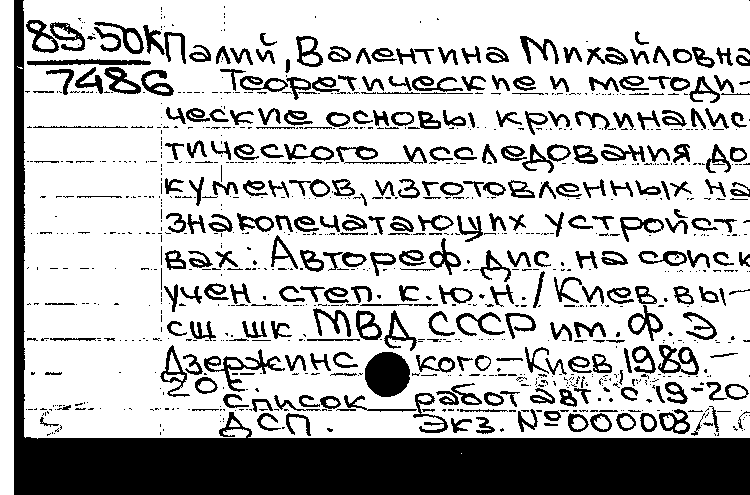 89-50К Палий, Валентина Михайловна
7486 Теоретические и методи-
ческие основы криминалис-
тического исследования до
кументов, изготовленных на
знакопечатающих устройст-
вах: Автореф. дис. на соиск
учен. степ. к.ю.н./Киев. вы-
сш. шк. МВД СССР им. Ф. Э.
Дзержинс кого.-Киев, 1989.-
20 с.
Список работ авт.: с.19-20
ДСП. Экз. №000008